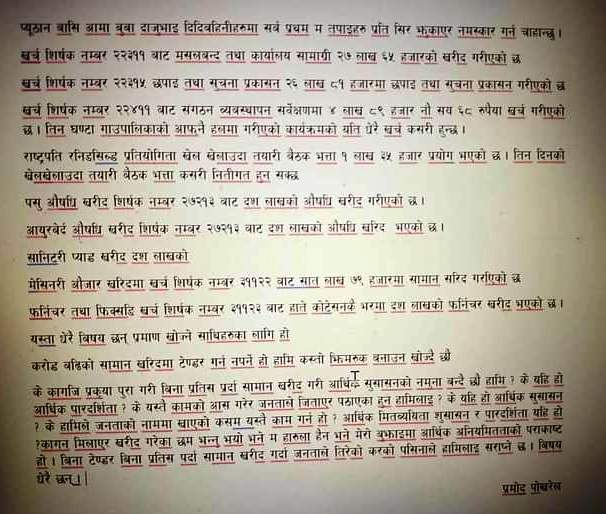 प्यूठान बासि आमा बुबा दाजुभाइ दिदिवहिनीहरुमा सर्व प्रथम म तपाइहरु प्रति सिर झुकाएर नमस्कार गर्न चाहान्छु ।
खर्च शिर्षक नम्बर २२३११ बाट मसलबन्द तथा कार्यालय सामाग्री २७ लाख ६५ हजारको खरीद गरीएको छ
खर्च शिर्षक नम्बर २२३१५ छपाइ तथा सुचना प्रकासन २६ लाख ८१ हजारमा छपाइ तथा सुचना प्रकासन गरीएको छ
खर्च शिर्षक नम्बर २२४११ बाट संगठन व्यवस्थापन सर्वेक्षणमा ४ लाख ८९ हजार नौ सय ६८ रुपैया खर्च गरीएको
छ । तिन घण्टा गाउपालिकाकी आफनै हलमा गरीएको कार्यक्रमको यति धेरै खर्च कसरी हुन्छ ।
राष्ट्रपति रनिङसिल्ड प्रतियोगिता खेल खेलाउदा तयारी बैठक भत्ता १ लाख ३५ हजार प्रयोग भएको छ । तिन दिनको
खेलखेलाउदा तयारी बैठक भत्ता कसरी नितीगत हुन सक्छ
पसु औषधि खरीद शिर्षक नम्वर २७२१३ बाट दश लाखको औषधि खरीद गरीएको छ ।
आयुरवेर्द औषधि खरीद शिर्षक नम्वर २७२१३ बाट दश लाखको औषधि खरिद भएको छ ।
सानिटरी प्याड खरीद दश लाखको
मेसिनरी औजार खरिदमा खर्च शिर्षक नम्बर ३११२२ बाट सात लाख ७९ हजारमा सामान सरिद गरीएको छ
फर्निचर तथा फिक्सडि खर्च शिर्षक नम्बर ३११२३ बाट हाते कोटेसनकै भरमा दश लाखको फर्निचर खरीद भएको छ ।
यस्ता धेरै बिषय छन् प्रमाण खोज्ने साथिहरुका लागि हो
करोड बढिको सामान खरिदमा टेण्डर गर्न नपर्ने हो हामि कस्तो झिमरुक बनाउन खोज्दै छौ
के कागजि प्रकृया पुरा गरी बिना प्रतिस प्रर्दा सामान खरीद गरी आर्थिक सुसासनको नमुना बन्दै छौ हामि ? के यहि हो
आर्थिक पारदर्शिता ? के यस्तै कामको आस गरेर जनताले जिताएर पठाएका हुन हामिलाइ ? के यहि हो आर्थिक सुसासन
? के हामिले जनताको नाममा खाएको कसम यस्तै काम गर्न हो ? आर्थिक मितव्ययिता शुसासन र पारदर्शिता यहि हो
?कागन मिलाएर खरीद गरेका छम भन्नु भयो भने म हारुला हैन भने मेरो बुफाइमा आर्थिक अनियमितताको पराकाष्ट
हो । बिना टेण्डर बिना प्रतिस पर्दा सामान खरीद गर्दा जनताले तिरेको करको पसिनाले हामिलाइ सराप्ने छ । बिषय
धेरै छन् । 
प्रमोद पोखरेल